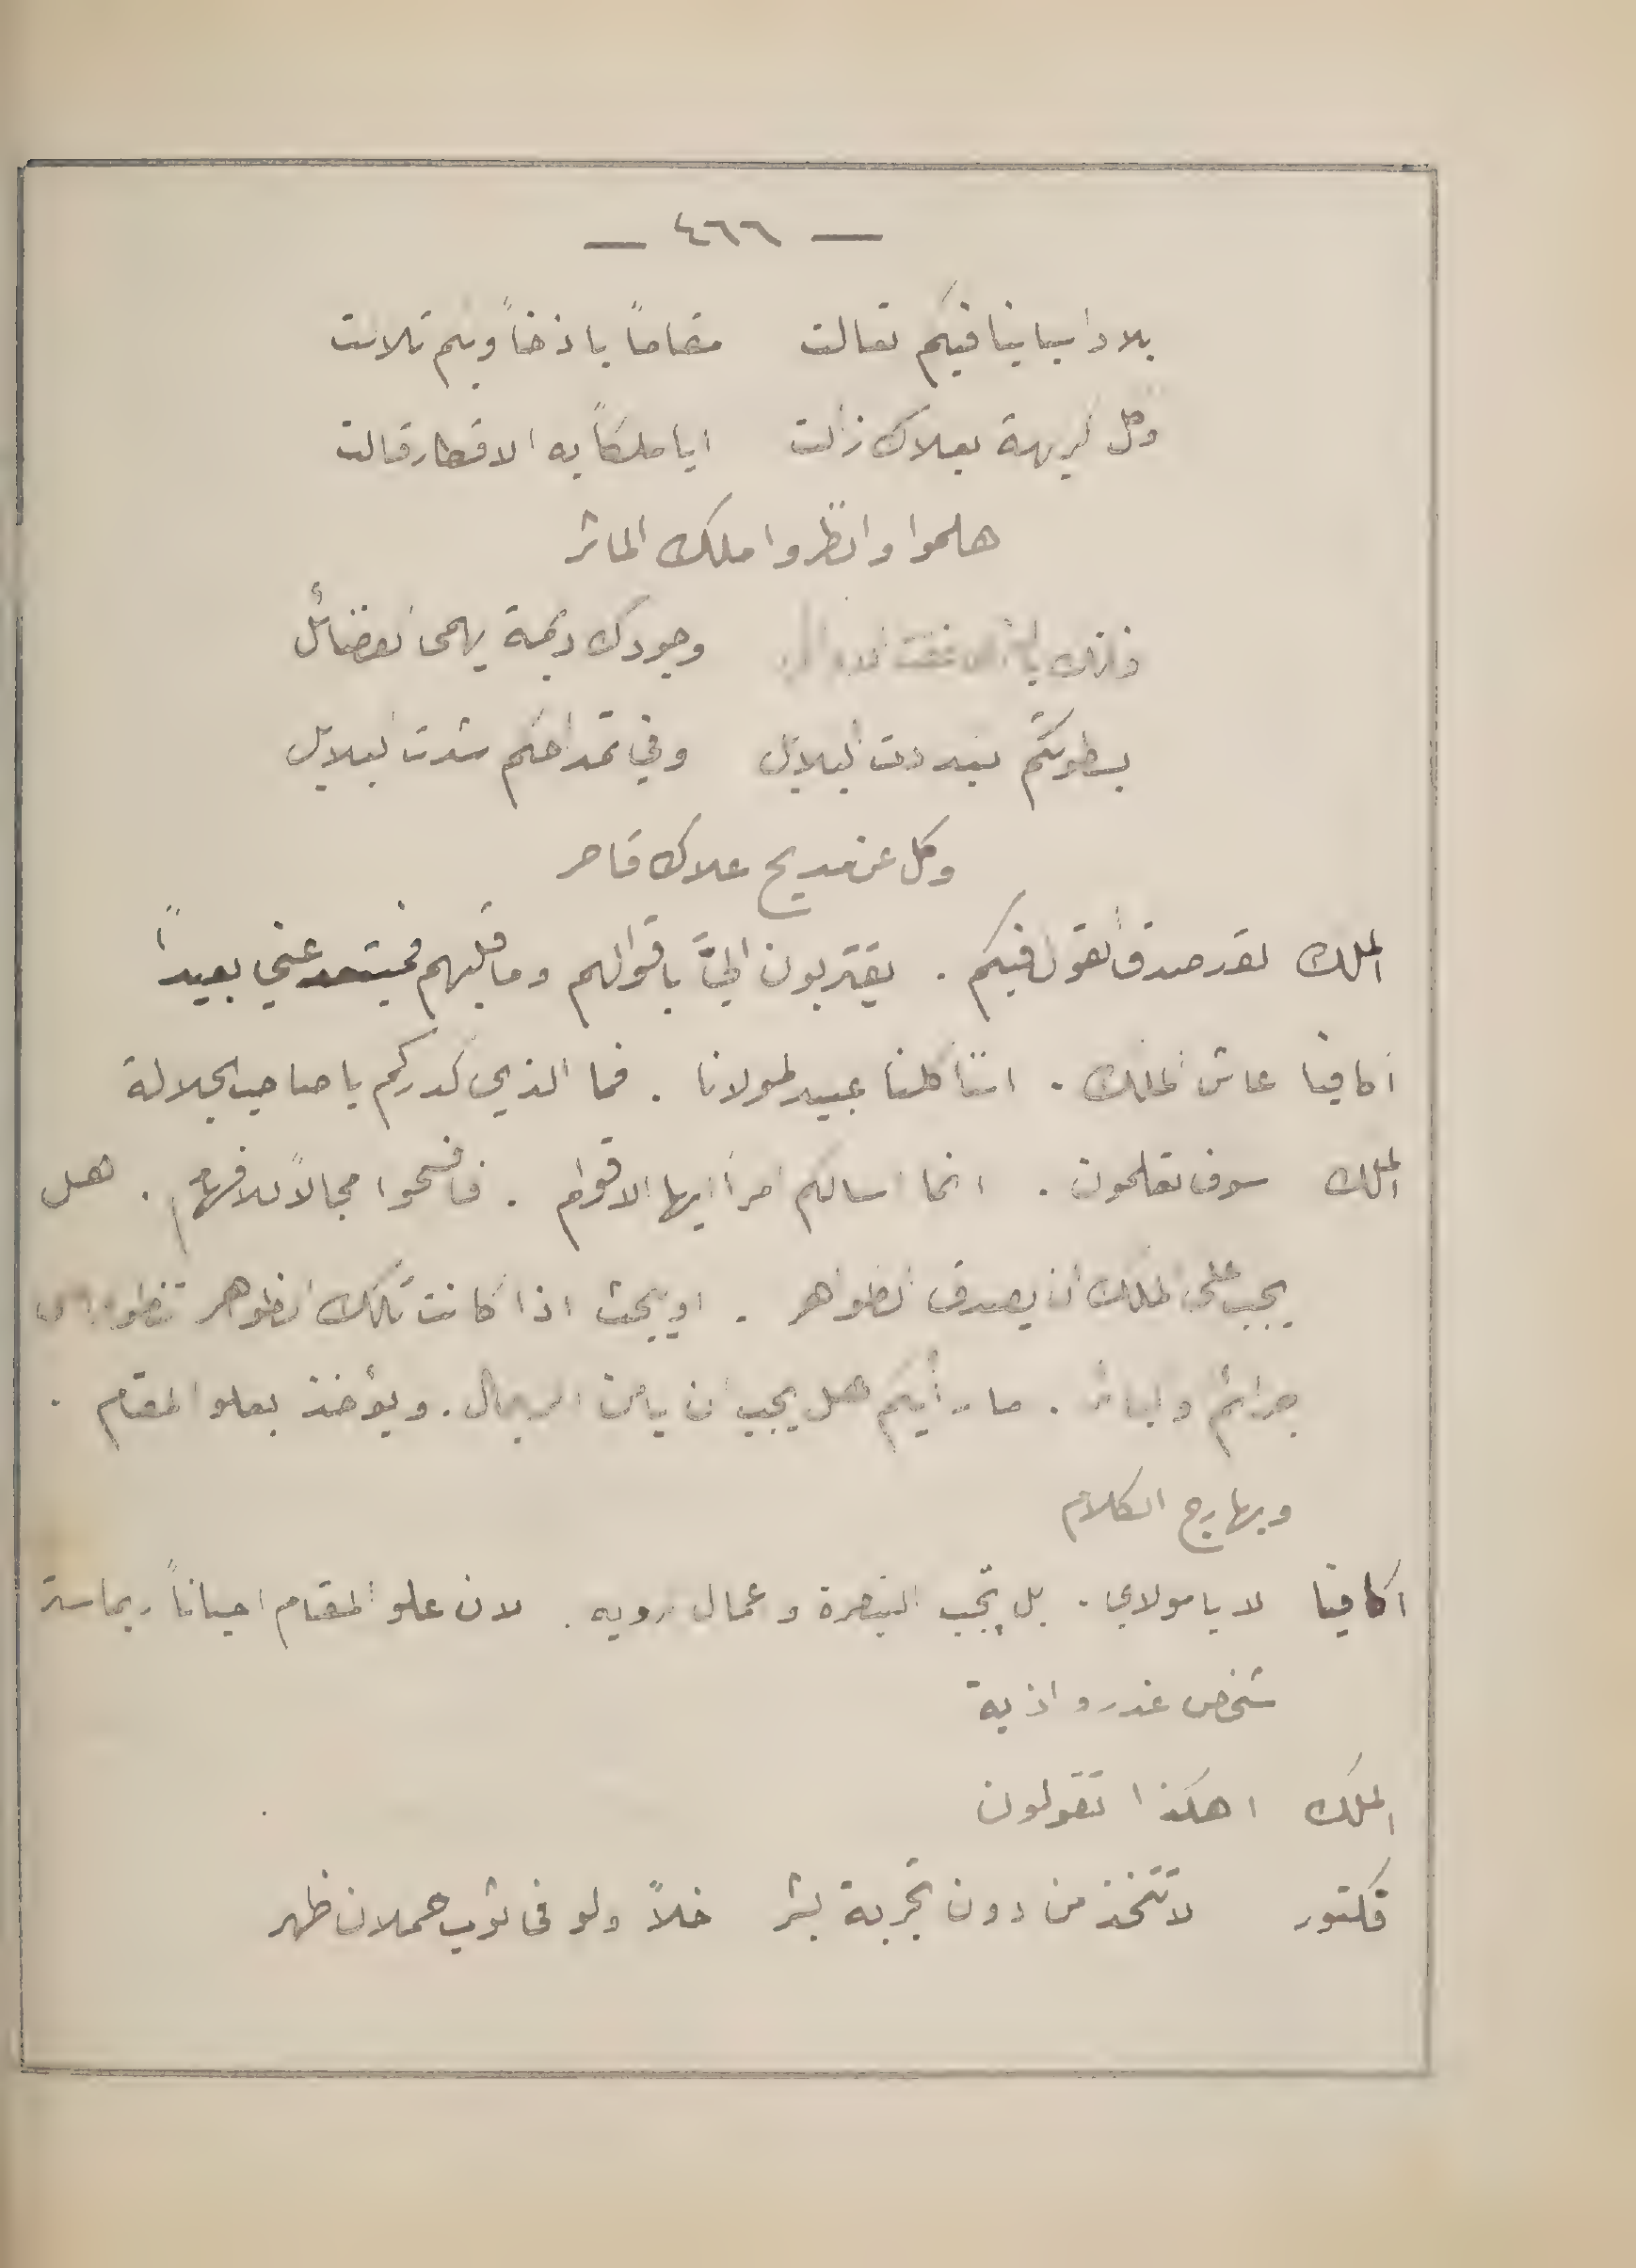 — ٤٦٦ —
بلاد اسبانيا فيكم تعالت مقاماً باذخاً وبكم تلالت
وكل كريهة بعلاك زالت ايا ملكاً به الاقطار قالت
هلموا وانظروا ملك الماثر
وجودك ديمة يهمى الفضائل
بسطوتكم تبددت البلابل وفي تمداحكم شدت البلابل
وكل عن مديح علاك قاصر
الملك لقد صدق القول فيكم . يقتربون اليَّ باقوالهم وما قلبهم فمبتعد عني بعيداً
اكافيا عاش الملك . اننا كلنا عبيد لمولانا . فما الذي كدركم يا صاحب الجلالة
الملك سوف تعلمون . انما اسالكم امراً ايها الاقوام . فافسحوا مجالاً للافهام . هل
يجب على الملك ان يصدق الظواهر . او يبحث اذا كانت تلك الظوهر تنطوي
جرائم وكبائر . ما رأيكم هل يجب ان يامن الرجال . ويؤخذ بعلو المقام .
وبهارج الكلام
اكافيا لا يا مولاي . بل يجب التبصرة وعمال رويه . لان علو المقام احياناً ربما ستر
شخص غدر واذية
الملك اهكذا تقولون
فكتور لا تتخذ من دون تجربة بشر خلاً ولو في ثوب هملان ظهر